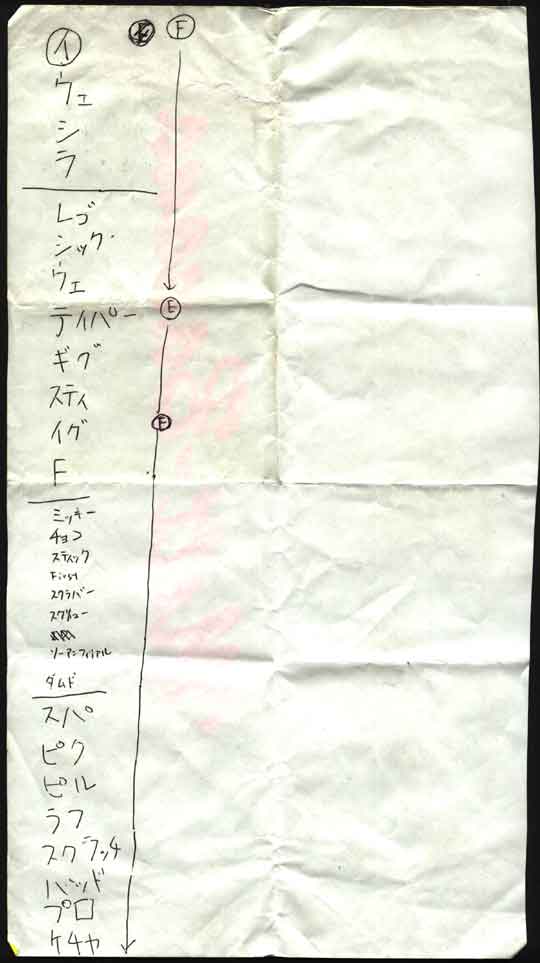 イ F
ウェ
シ
ラ
レゴ
シック
ウェ
E
テイパー
ギグ
スティ
イグ
E
F
ミッキー
チョコ
スティック
First
スクラバー
スクリュー
ダムド
スパ
ピク
ピル
ラフ
スクラッチ
ハッド
プロ
ケチャ